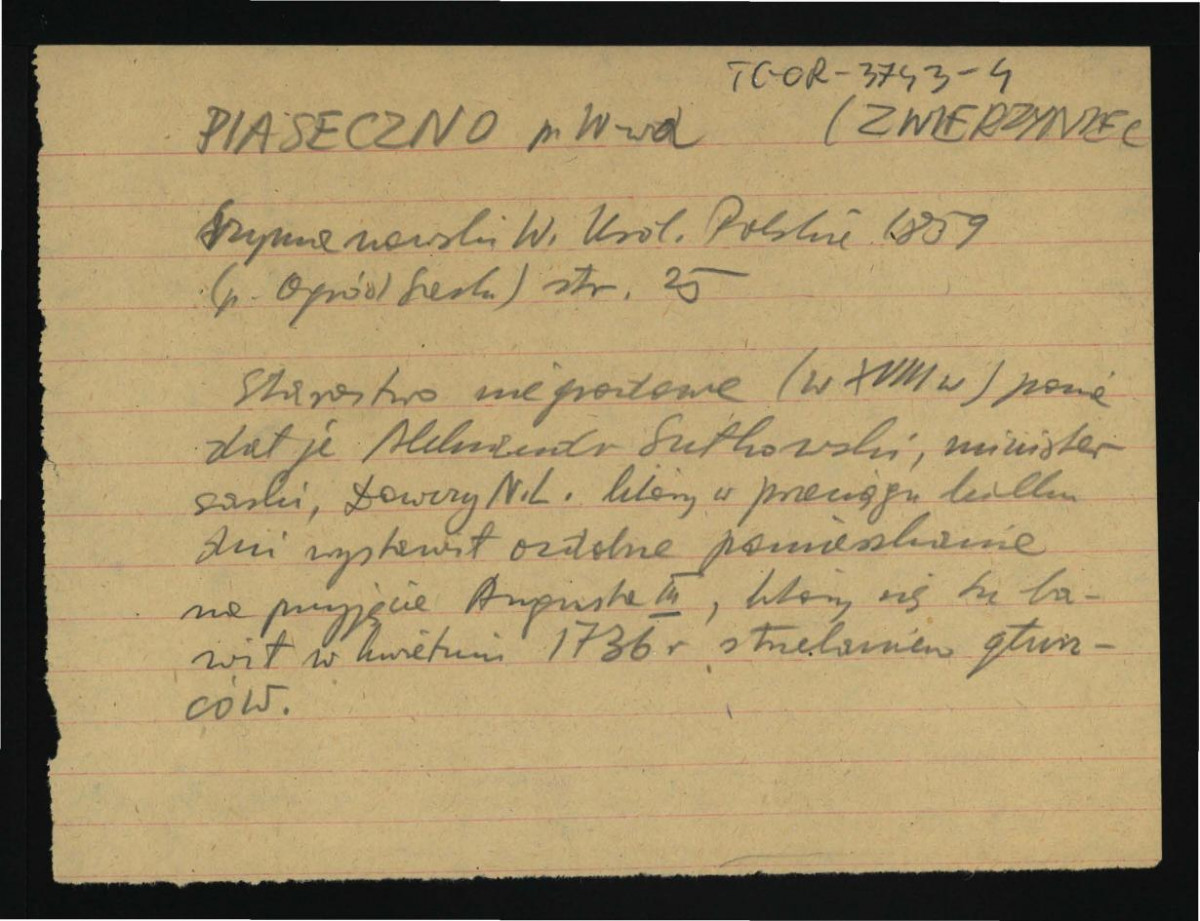 TC-OR-3743-4
PIASECZNO p. W-wa (ZWIERZYNIEC
Szymanowski W. Król. Polskie 1859
(p. Ogród Saski) str. 25
Starostwo niegrodowe (w XVIII w) posia
dał je Aleksandr Sułkowski, minister
saski, Łowczy N.L. który w przeciągu kilku
dni wystawił ozdobne pomieszkanie
na przyjęcie Augusta III, który się tu ba-
wił w kwietniu 1736 r strzelaniem głusz-
ców.